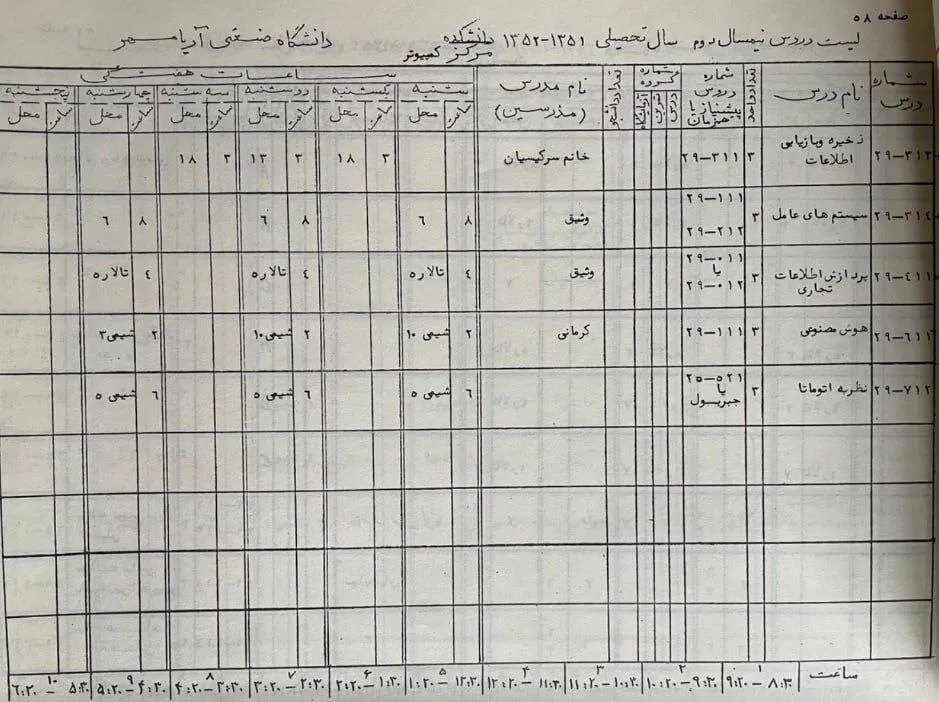 صفحه ۵۸
لیست دروس نیمسال دوم سال تحصیلی ۱۳۵۱-۱۳۵۲ دانشکده دانشگاه صنعتی آریامهر
مرکز کمپیوتر
شماره درس نام درس تعداد واحد شماره دروس پیشنیاز یا همزمان شماره گروه درس تمرین آزمایشگاه تعداد دانشجو نام مدرس (مدرسین) ساعات هفتگی
شنبه یکشنبه دوشنبه سه شنبه چهارشنبه پنجشنبه
ساعت محل ساعت محل ساعت محل ساعت محل ساعت محل ساعت محل
۲۹-۳۱۳ ذخیره وبازیابی اطلاعات ۳ ۲۹-۳۱۱ خانم سرکیسیان ۳ ۱۸ ۳ ۱۳ ۳ ۱۸
۲۹-۳۱٤ سیستم های عامل ۳ ۲۹-۱۱۱ ۲۹-۲۱۲ وثیق ۸ ۶ ۸ ۶ ۸ ۶
۲۹-٤۱۱ پردازش اطلاعات تجاری ۳ ۲۹-۰۱۱ یا ۲۹-۰۱۲ وثیق ٤ تالاره ٤ تالاره ٤ تالاره
۲۹-۶۱۱ هوش مصنوعی ۳ ۲۹-۱۱۱ کرمانی ۲ شیمی ۱۰ ۲ شیمی ۱۰ ۲ شیمی ۳
۲۹-۷۱۲ نظریه اتوماتا ۳ ۲۵-۵۲۱ یا جبربول ۶ شیمی ۵ ۶ شیمی ۵ ۶ شیمی ۵
ساعت ۱ ۲ ۳ ۴ ۵ ۶ ۷ ۸ ۹ ۱۰
۸:۳۰ – ۹:۲۰ ۹:۳۰ – ۱۰:۲۰ ۱۰:۳۰ – ۱۱:۲۰ ۱۱:۳۰ – ۱۲:۲۰ ۱۲:۳۰ – ۱:۲۰ ۱:۳۰ – ۲:۲۰ ۲:۳۰ – ۳:۲۰ ۳:۳۰ – ۴:۲۰ ۴:۳۰ – ۵:۲۰ ۵:۳۰ – ۶:۲۰